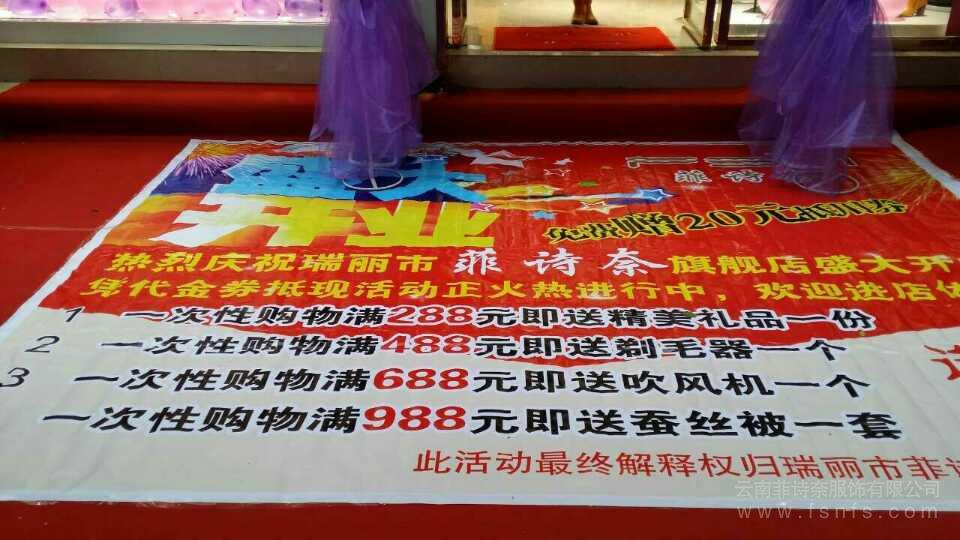 菲诗
开业
免费赠20元
热烈庆祝瑞丽市菲诗奈旗舰店盛大开
凭代金券抵现活动正火热进行中，欢迎进店体
1 一次性购物满288元即送精美礼品一份
2 一次性购物满488元即送剃毛器一个
3 一次性购物满688元即送吹风机一个
一次性购物满988元即送蚕丝被一套
此活动最终解释权归瑞丽市菲诗
云南菲诗奈服饰有限公司
www.fsnfs.com